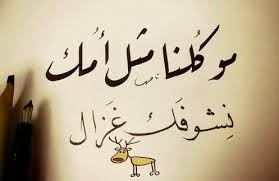 مو كُلنا مثل أمك
نِشوفَك غَزال